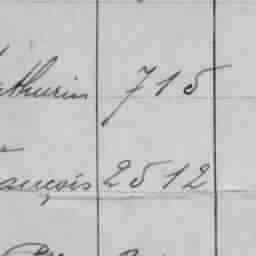 athurin 715
ançois 2512